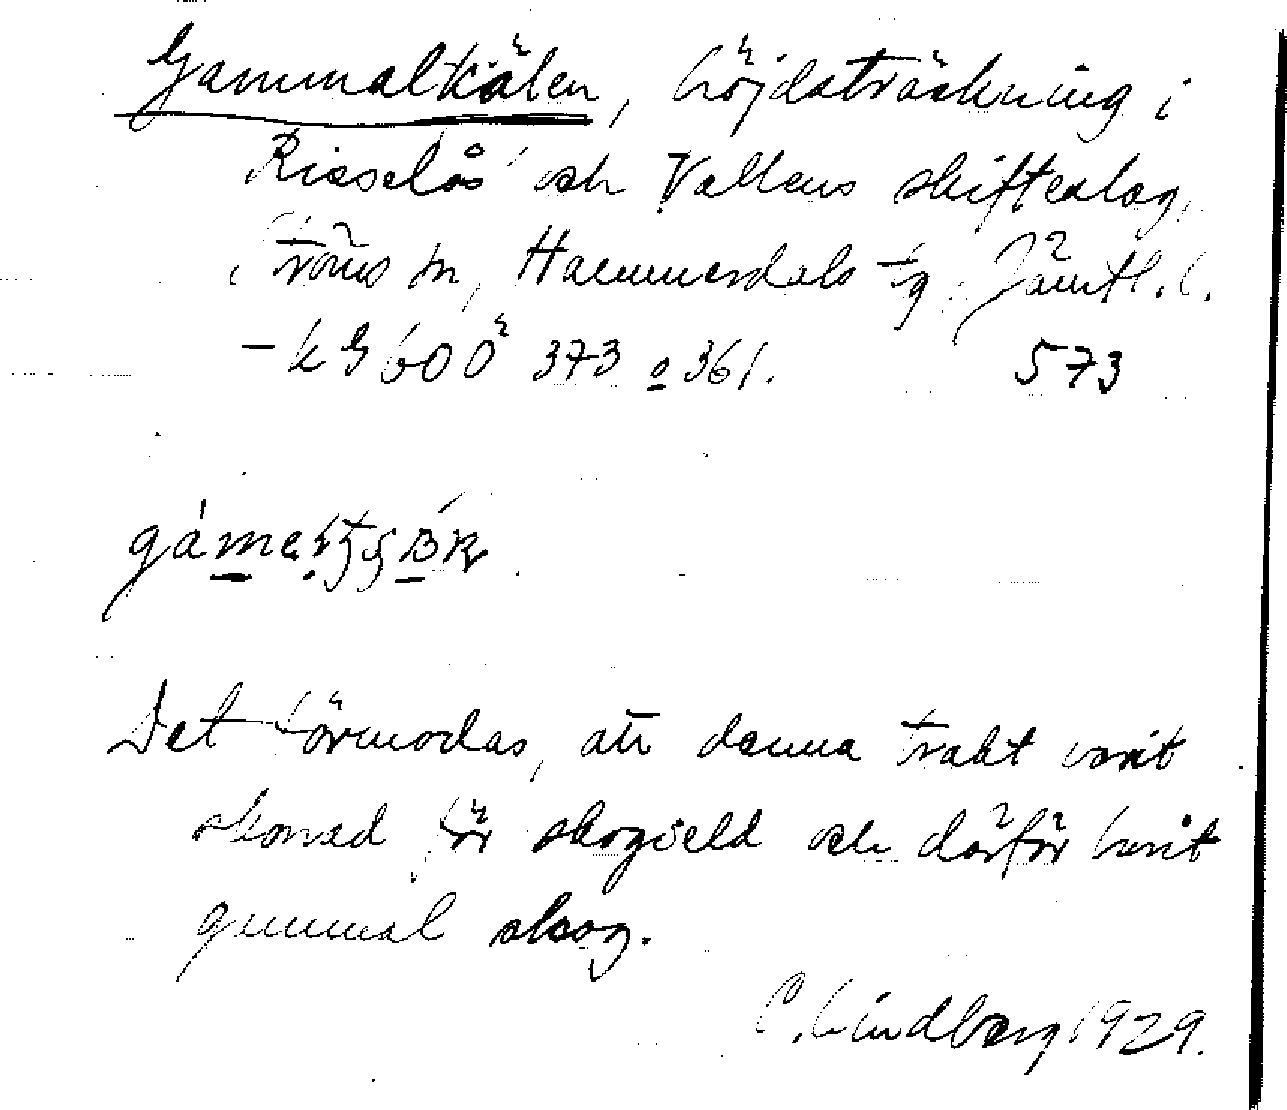 Gammalkälen, höjdsträckning i
Risselås och Vallens skifteslag,
Ströms sn, Hammerdals tg Jämtl. l.
- k G 600 373 o 361. 573
Det förmodas, att denna trakt varit
skonad för skogseld och därför burit
gammal skog.
C. Lindberg 1929.